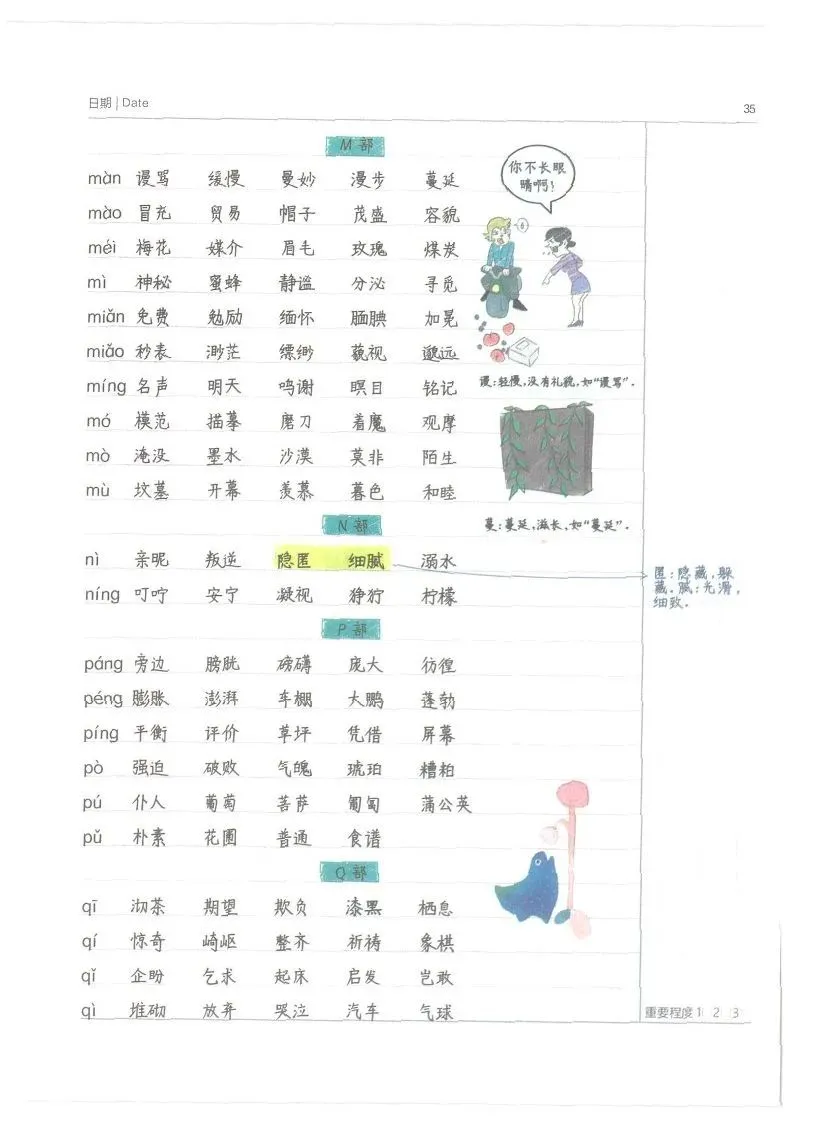 日期 | Date
35
M 部
màn 谩骂 缓慢 曼妙 漫步 蔓延
mào 冒充 贸易 帽子 茂盛 容貌
méi 梅花 媒介 眉毛 玫瑰 煤炭
mì 神秘 蜜蜂 静谧 分泌 寻觅
miǎn 免费 勉励 缅怀 腼腆 加冕
miǎo 秒表 渺茫 缥缈 藐视 邈远
míng 名声 明天 鸣谢 瞑目 铭记
mó 模范 描摹 磨刀 着魔 观摩
mò 淹没 墨水 沙漠 莫非 陌生
mù 坟墓 开幕 羡慕 暮色 和睦
你不长眼
睛啊!
6
谩:轻慢,没有礼貌,如“谩骂”.
蔓:蔓延,滋长,如“蔓延”.
N 部
nì 亲昵 叛逆 隐匿 细腻 溺水
níng 叮咛 安宁 凝视 狰狞 柠檬
匿:隐藏,躲
藏.腻:光滑,
细致.
P 部
páng 旁边 膀胱 磅礴 庞大 彷徨
péng 膨胀 澎湃 车棚 大鹏 蓬勃
píng 平衡 评价 草坪 凭借 屏幕
pò 强迫 破败 气魄 琥珀 糟粕
pú 仆人 葡萄 菩萨 匍匐 蒲公英
pǔ 朴素 花圃 普通 食谱
Q 部
qī 沏茶 期望 欺负 漆黑 栖息
qí 惊奇 崎岖 整齐 祈祷 象棋
qǐ 企盼 乞求 起床 启发 岂敢
qì 堆砌 放弃 哭泣 汽车 气球
重要程度 1 2 3